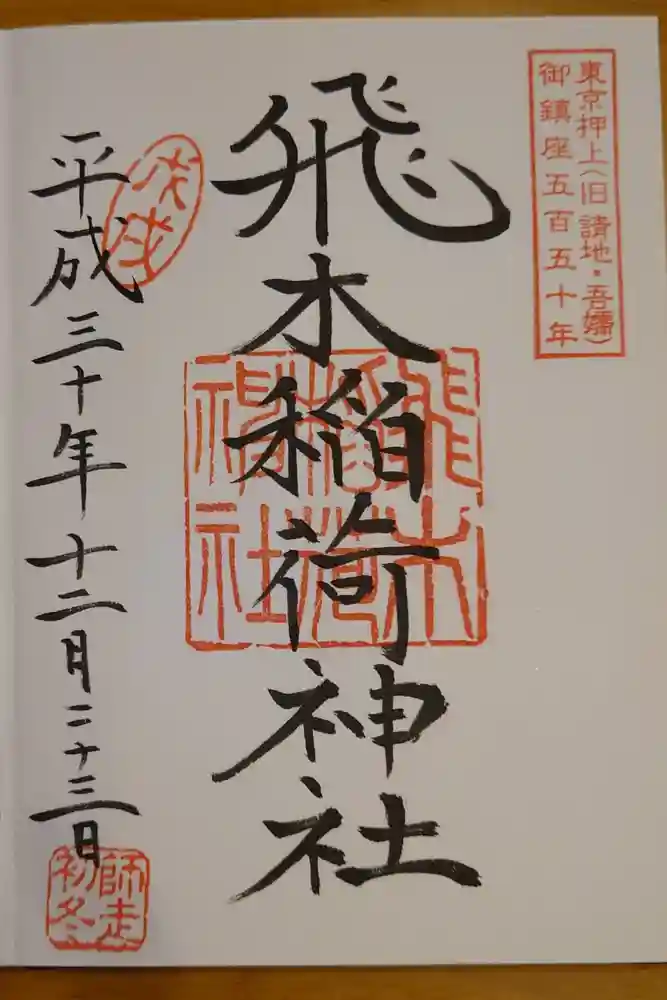 東京押上(旧 請地・吾嬬)
御鎮座五百五十年
飛木稲荷神社
飛木
稲荷
神社
戊戌
平成三十年十二月二十三日
師走
初冬